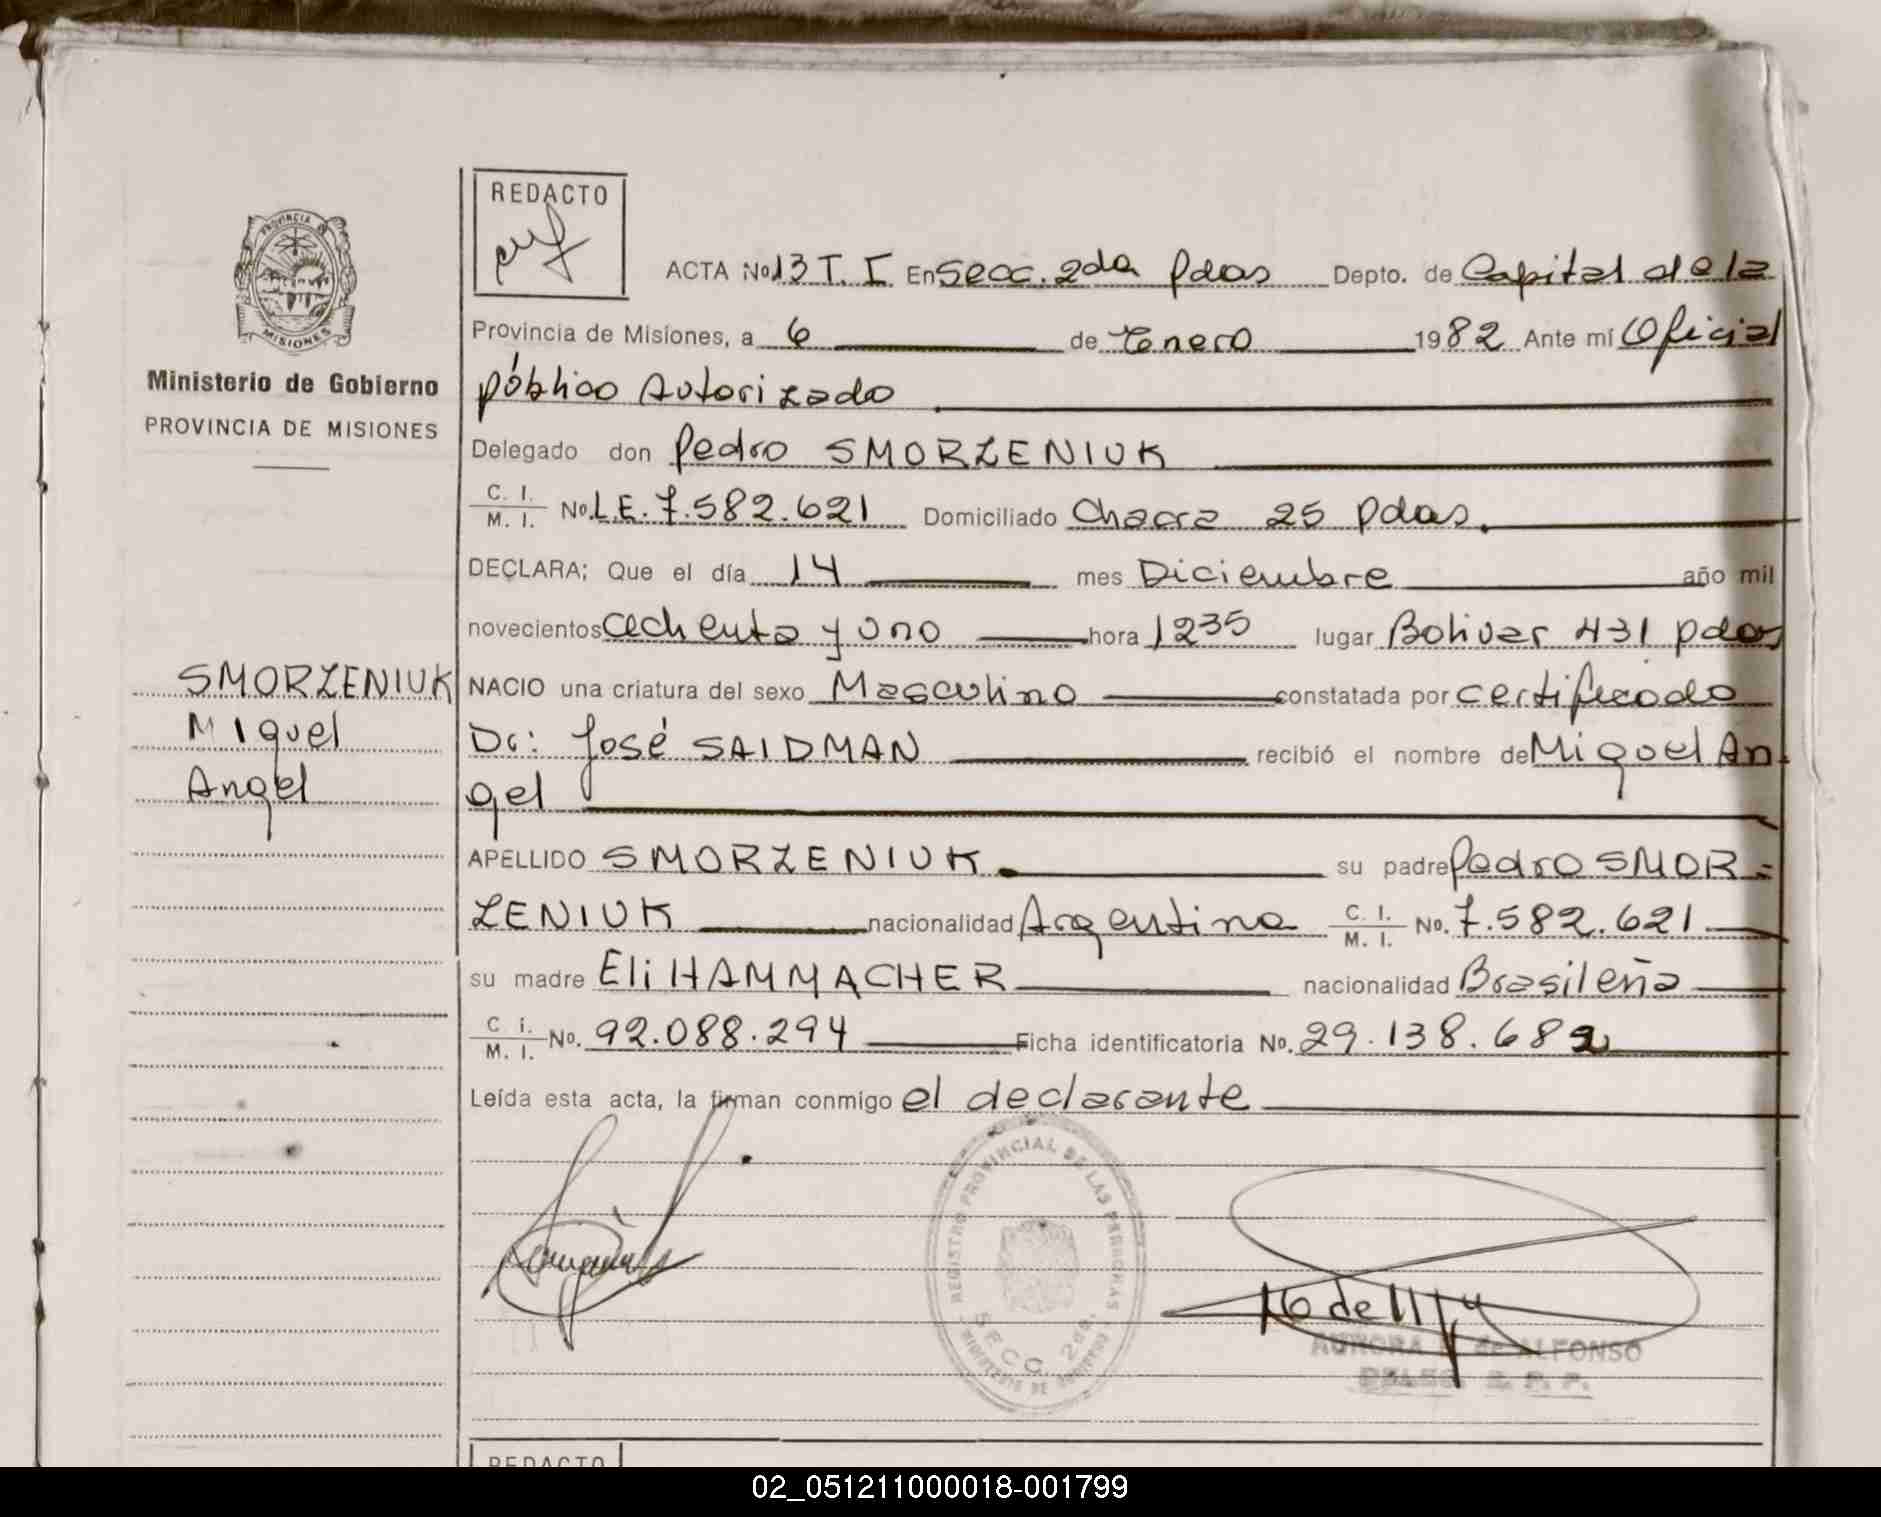 REDACTO
PROVINCIA
MISIONES
ACTA No. 13 T. I En Secc. 2da Pdas Depto. de Capital de la
Provincia de Misiones, a 6 de Enero 1982 Ante mí Oficial
Ministerio de Gobierno
público Autorizado
PROVINCIA DE MISIONES
Delegado don Pedro SMORZENIUK
C. I.
M. I. No. L.E. 7.582.621 Domiciliado Chacra 25 Pdas.
DECLARA; Que el día 14 mes Diciembre año mil
novecientos ochenta y uno hora 1235 lugar Bolivar 431 pdas
SMORZENIUK
Miguel
Angel
NACIO una criatura del sexo Masculino constatada por certificado
Dr: José SAIDMAN recibió el nombre de Miguel An-
gel
APELLIDO SMORZENIUK su padre Pedro SMOR=
ZENIUK nacionalidad Argentina C. I. M. I. No. 7.582.621
su madre Eli HAMMACHER nacionalidad Brasileña
C i.
M. I. No. 92.088.294 Ficha identificatoria No. 29.138.682
Leída esta acta, la firman conmigo el declarante
REGISTRO PROVINCIAL DE LAS PERSONAS
SECC. 2da.
AURORA de ALFONSO
DELEG. R. P. P.
REDACTO
02_051211000018-001799